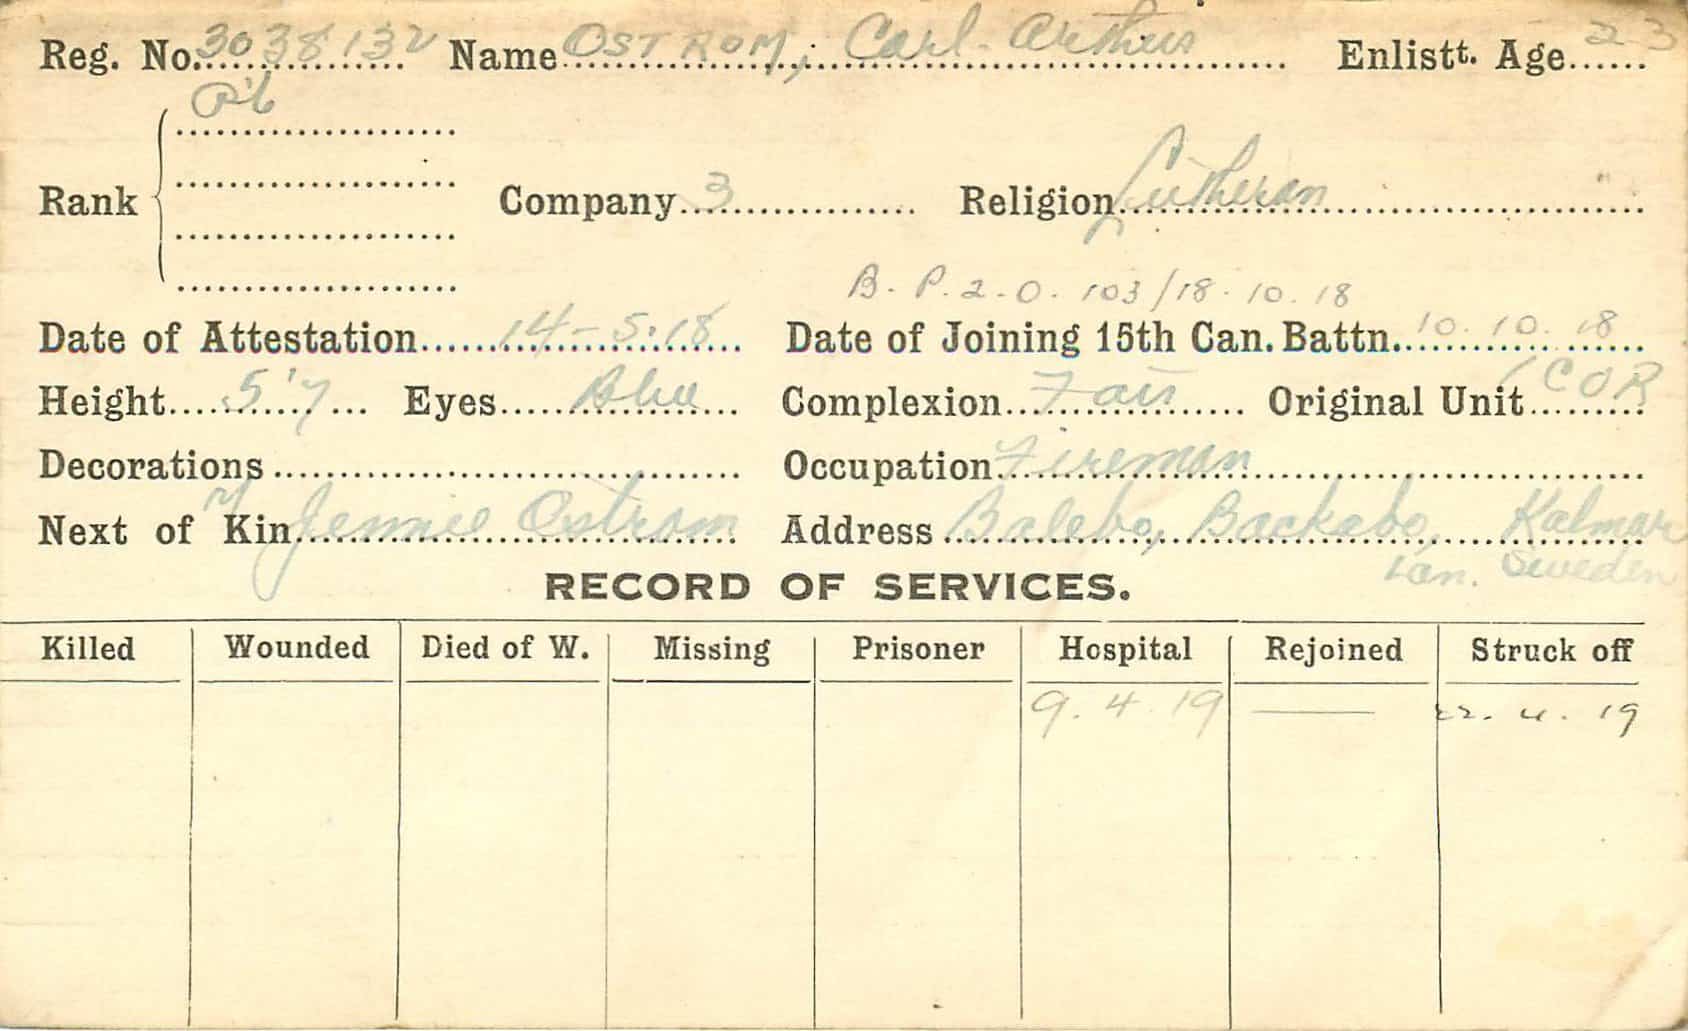 Reg. No. 3038132 Name OSTROM, Carl Arthur Enlistt. Age 23
Pte
Rank Company 3 Religion Lutheran
B. P. 2. O. 103/18.10.18
Date of Attestation 14-5.18 Date of Joining 15th Can. Battn. 10.10.18
Height 5'7 Eyes Blue Complexion Fair Original Unit 1COR
Decorations Occupation Fireman
Next of Kin Jennie Ostrom Address Balebo, Backabo, Kalmar
Lan. Sweden
RECORD OF SERVICES.
Killed Wounded Died of W. Missing Prisoner Hospital Rejoined Struck off
9.4.19 — 22.4.19